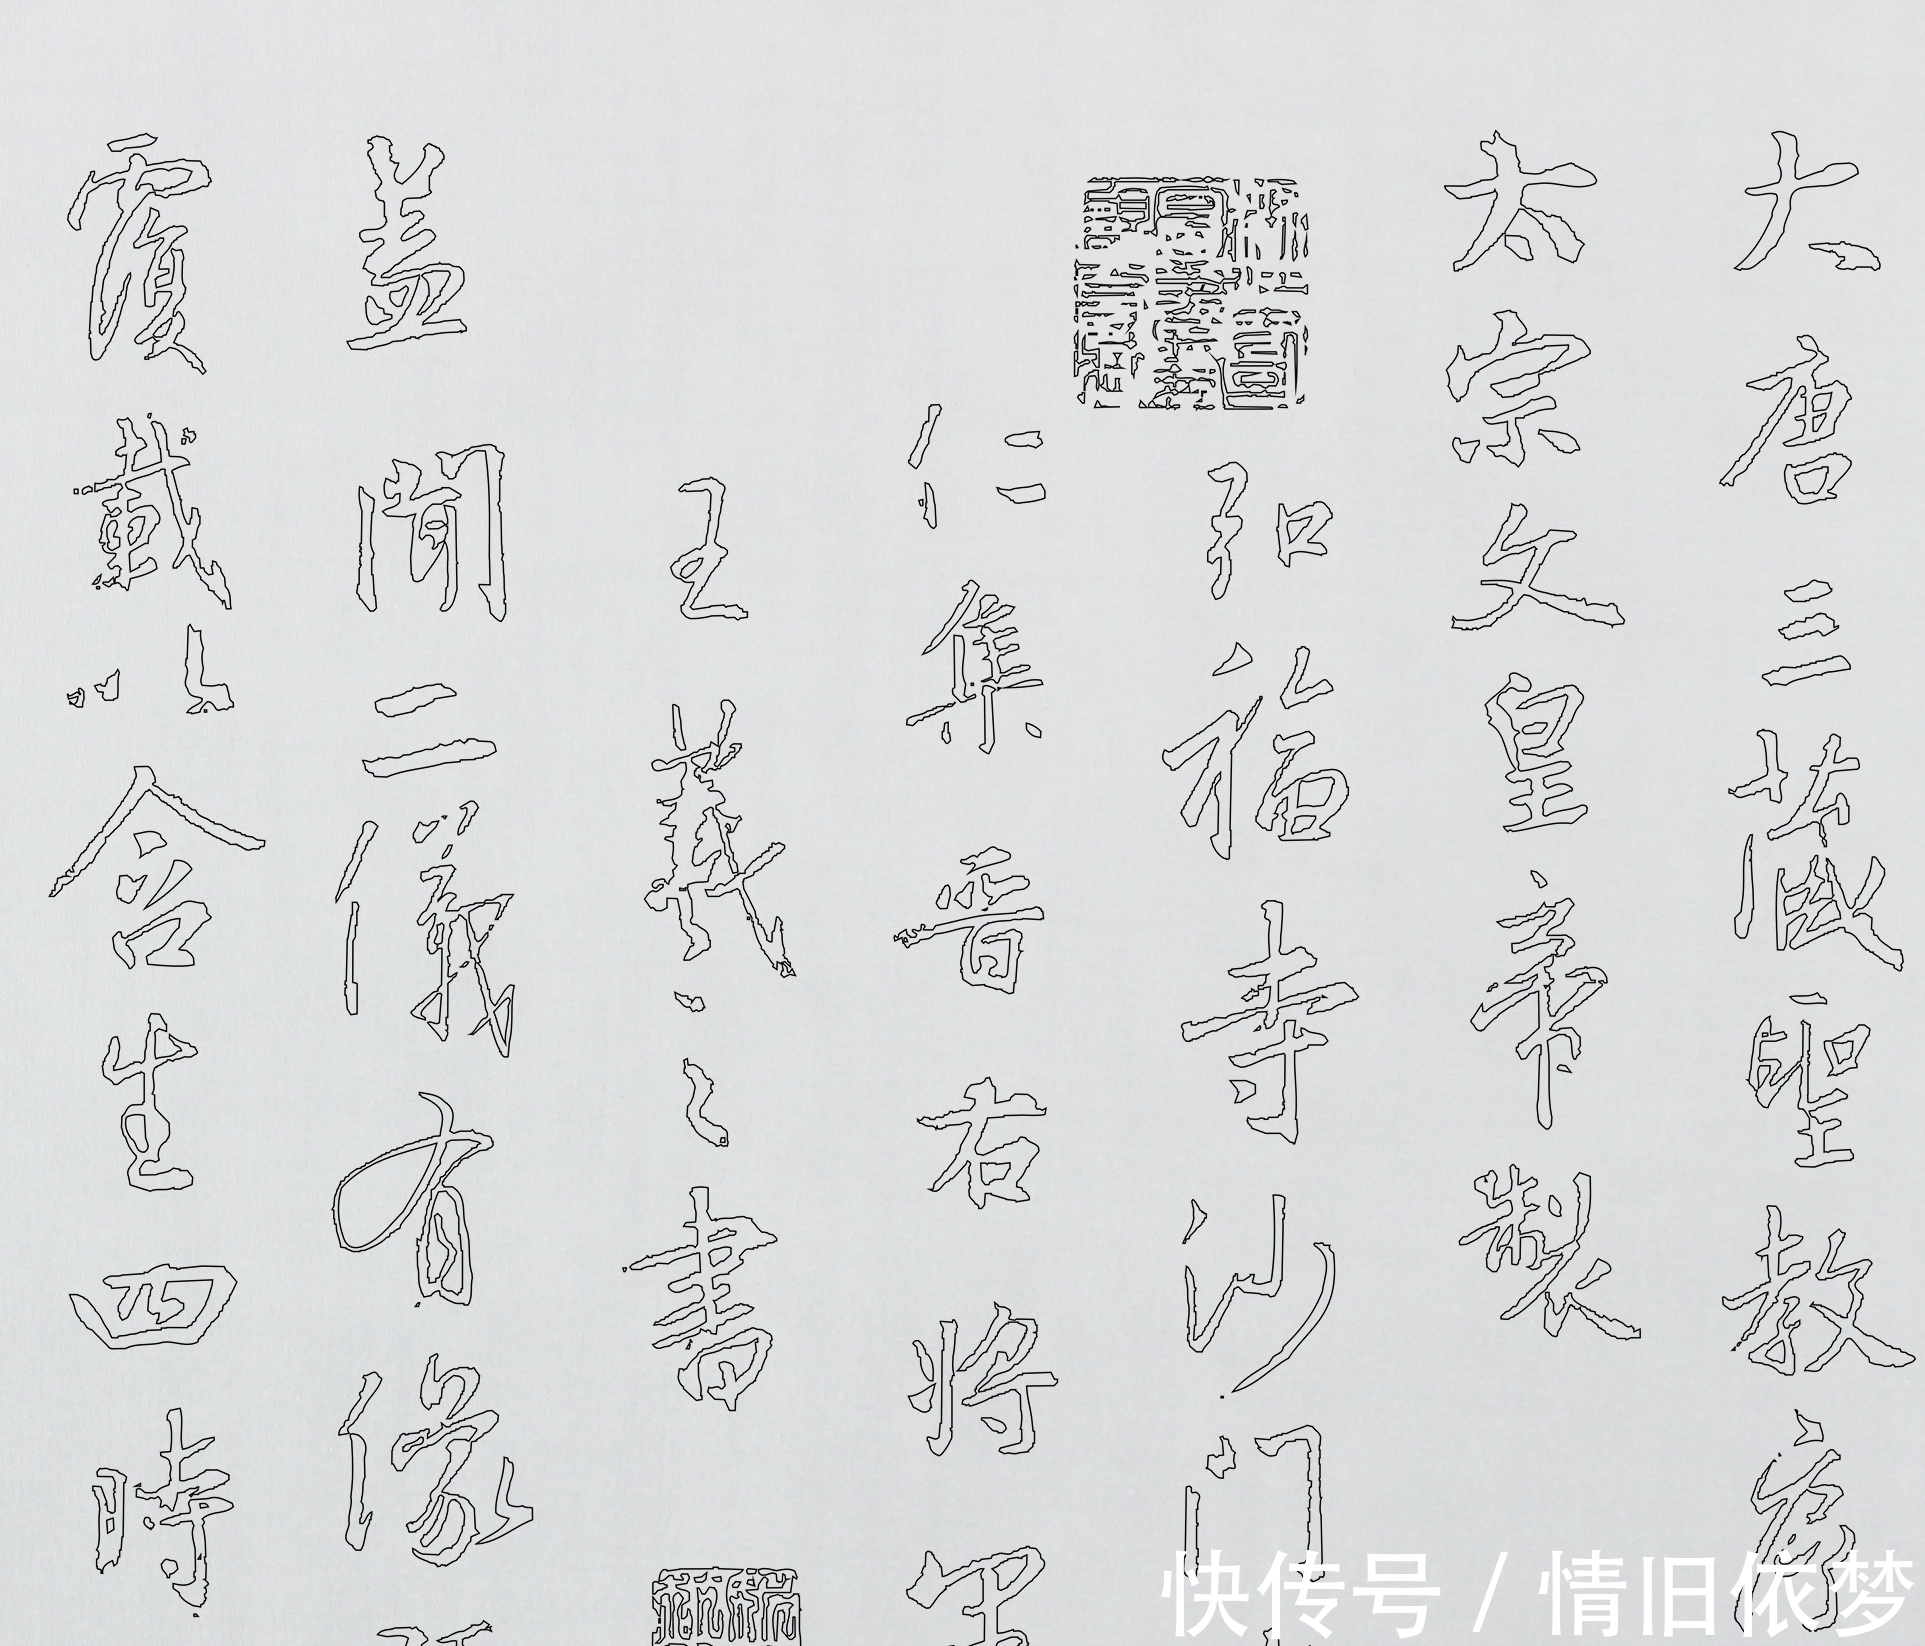 大唐三藏聖教序
太宗文皇帝製
弘福寺沙門
仁集晋右将軍
王羲之書
盖聞二儀有像
覆載以含生四時
快传号／情旧依梦